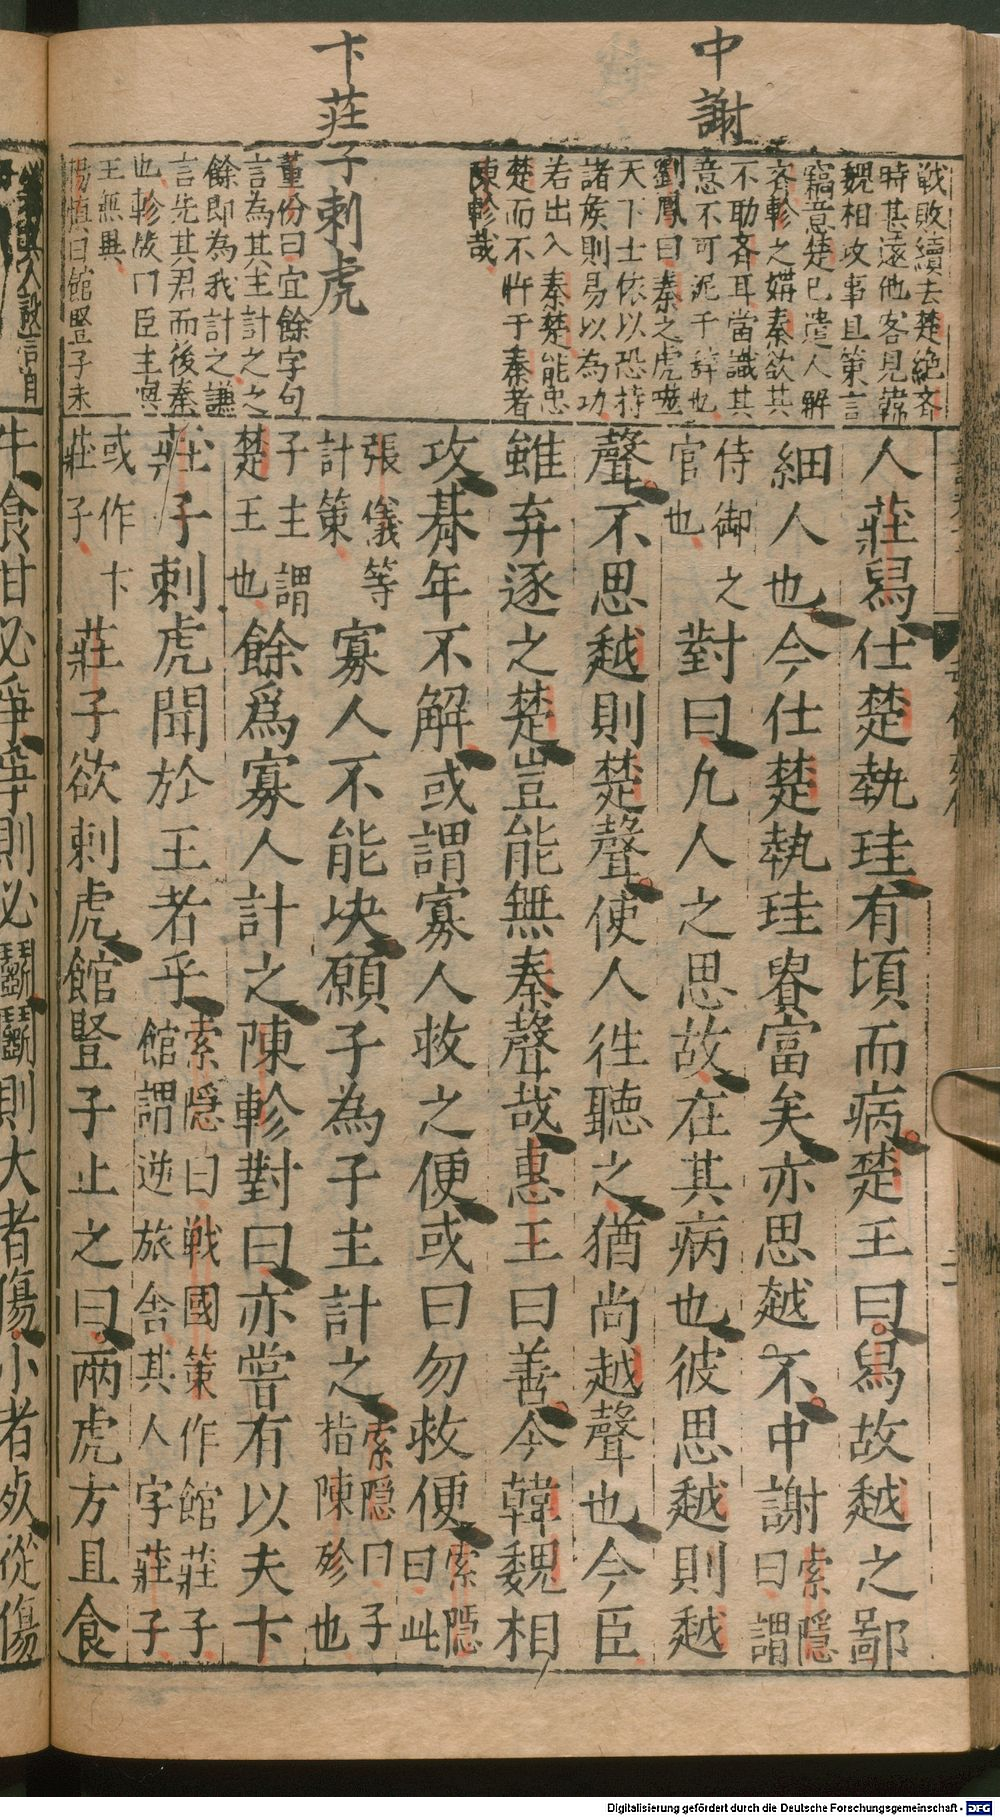 中謝
卞莊子刺虎
戰敗續去楚絕吝
時甚遠他客見韓
魏相攻事且策言
竊意楚已遣人解
吝軫之媾秦欲其
不助吝耳當識其
意不可泥于辭也
劉鳳曰秦之虎噬
天下士依以恐持
諸侯則易以為功
若出入秦楚能忠
楚而不忤于秦者
陳軫哉
董份曰宜餘字句
言為其主計之之
餘即為我計之謙
言先其君而後秦
也軫故曰臣主與
王無異
楊慎曰館豎子未
人莊舃仕楚執珪有頃而病楚王曰舃故越之鄙
細人也今仕楚執珪貴富矣亦思越不中謝索隱曰謂
侍御之官也對曰凡人之思故在其病也彼思越則越
聲不思越則楚聲使人往聽之猶尚越聲也今臣
雖弃逐之楚豈能無秦聲哉惠王曰善今韓魏相
攻朞年不解或謂寡人救之便或曰勿救便索隱曰此
張儀等計策寡人不能決願子為子主計之索隱曰子指陳軫也
子主謂楚王也餘爲寡人計之陳軫對曰亦嘗有以夫卞
莊子刺虎聞於王者乎索隱曰戰國策作館莊子館謂逆旅舍其人字莊子
或作卞莊子莊子欲刺虎館豎子止之曰兩虎方且食
牛食甘必爭爭則必鬬鬬則大者傷小者死從傷
Digitalisierung gefördert durch die Deutsche Forschungsgemeinschaft - DFG